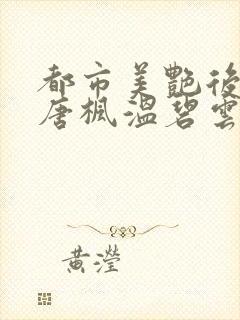 都市美艷後
唐楓溫碧雲
黃瀅